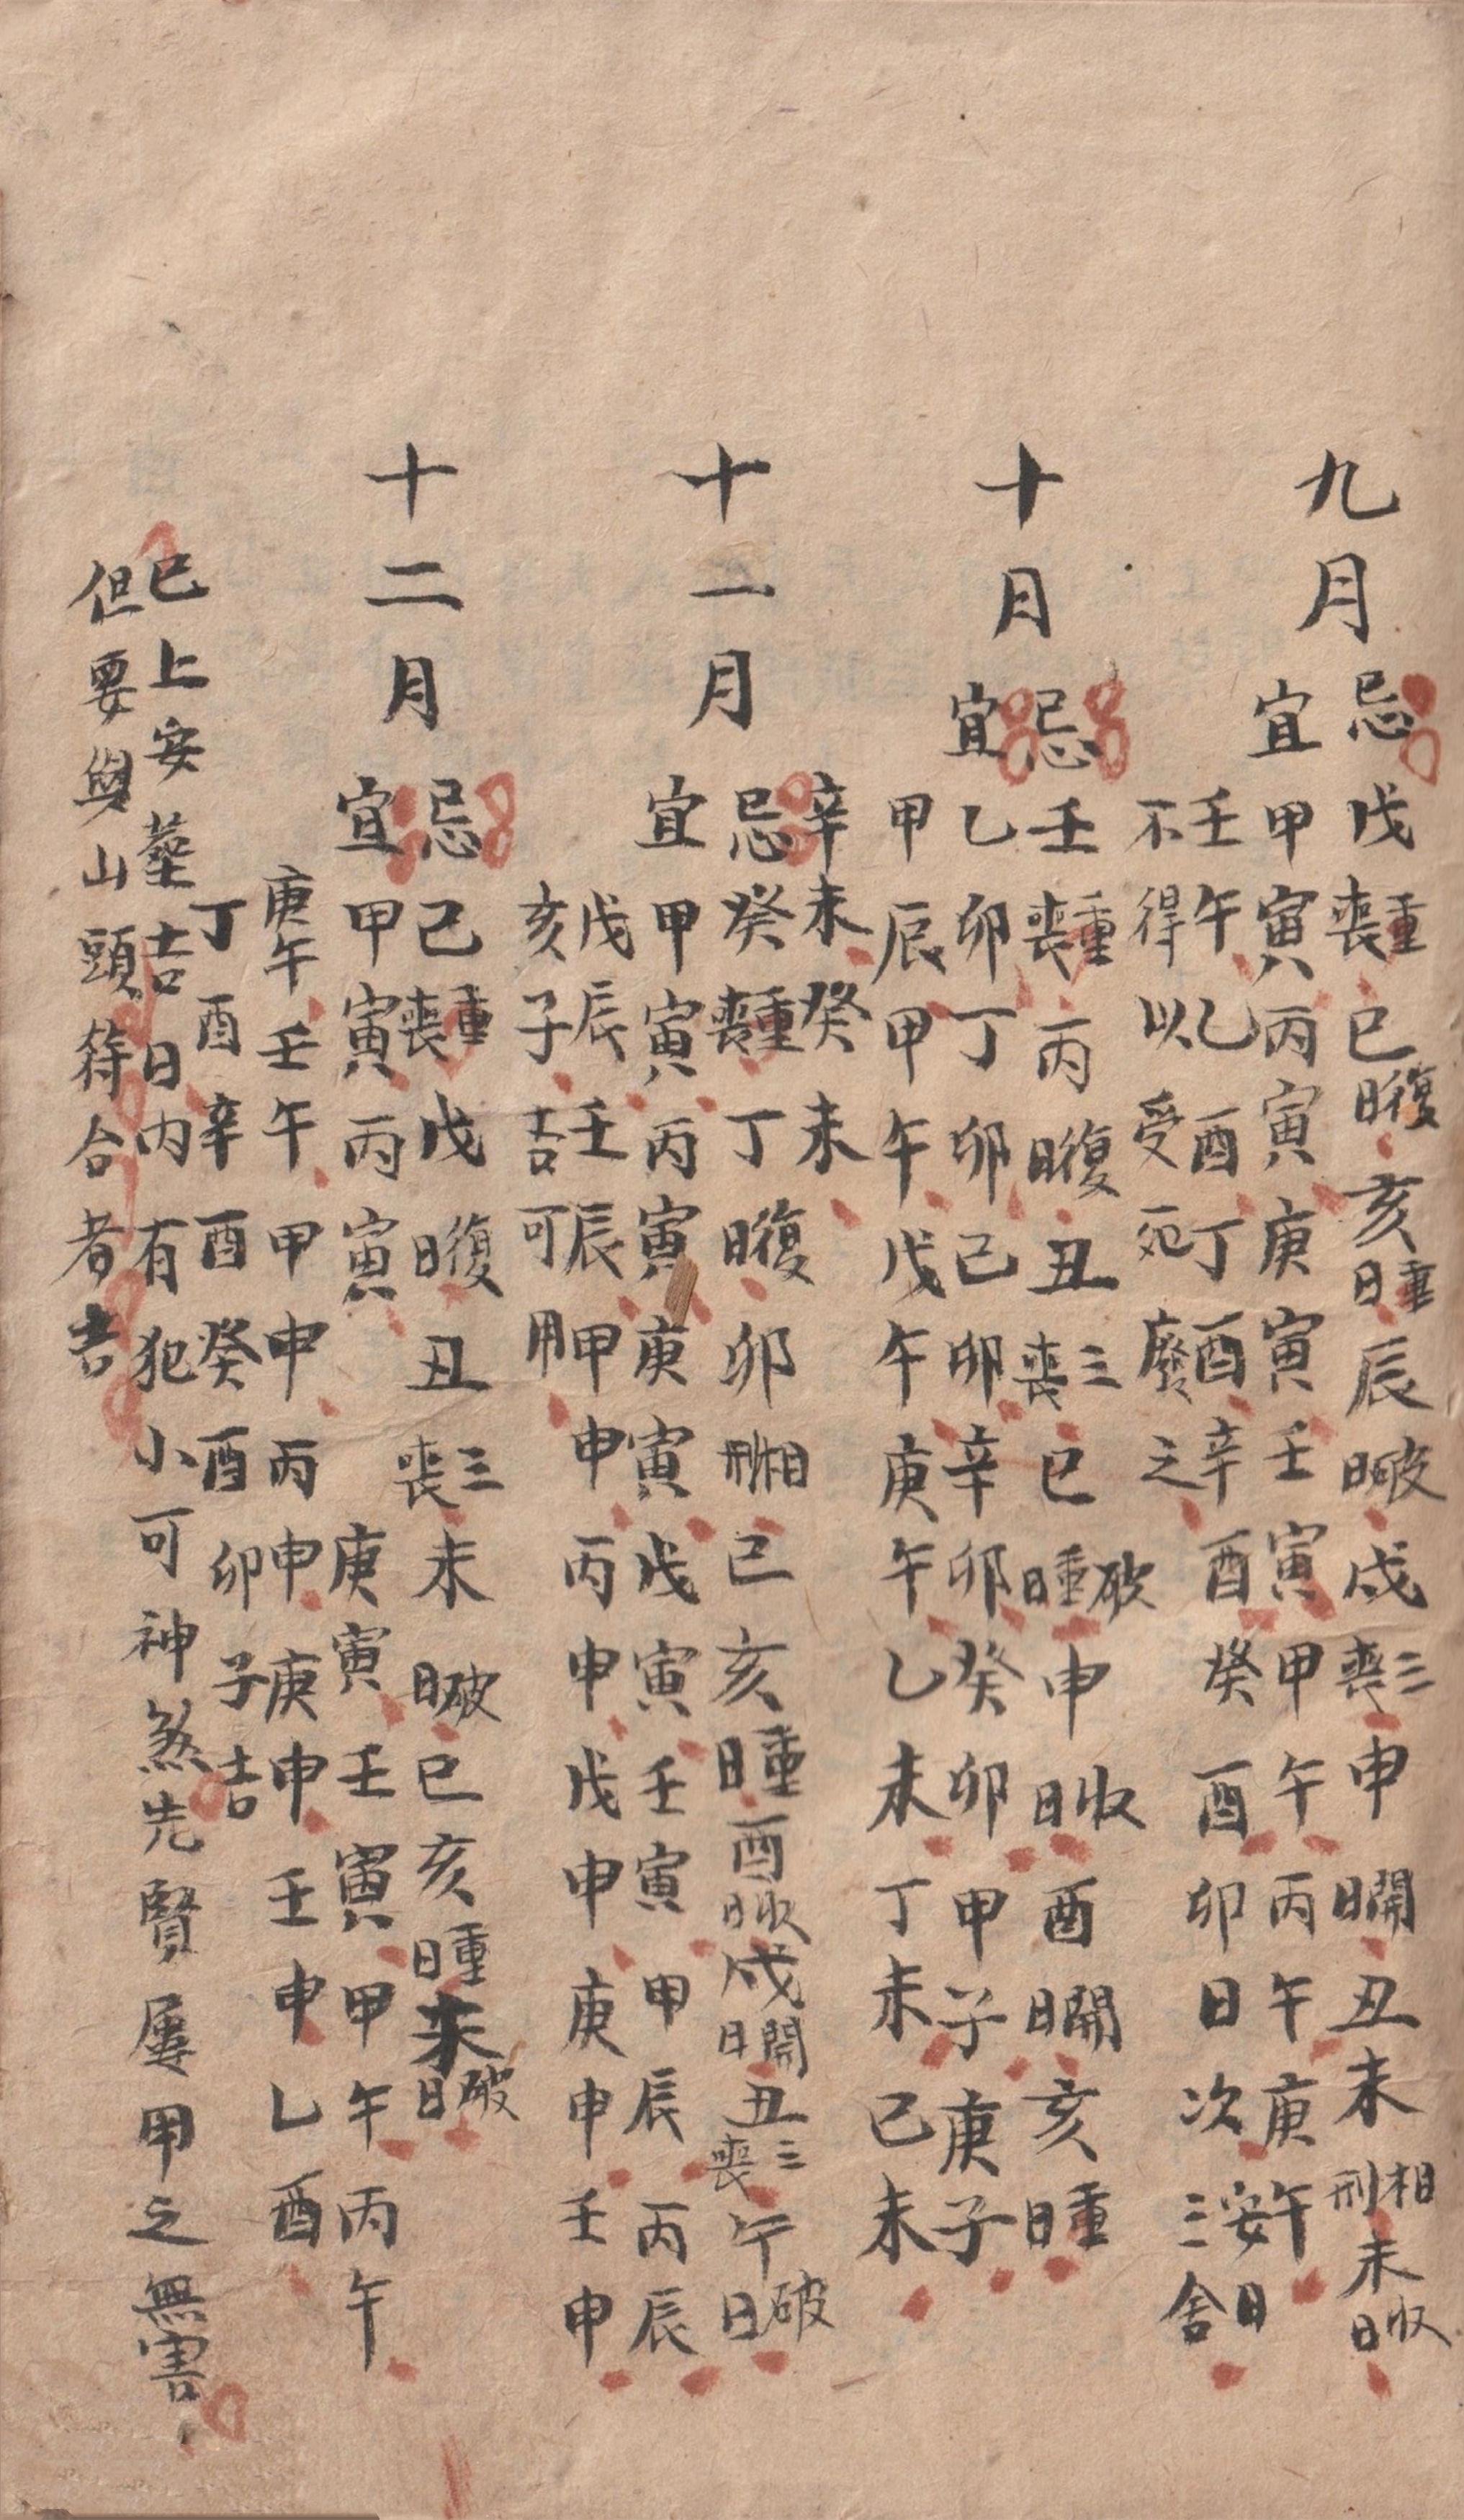 九月
忌戊重喪巳復日亥重日辰破日戌三喪申開日丑未相刑未收日
宜甲寅丙寅庚寅壬寅甲午丙午庚午
壬午乙酉丁酉辛酉癸酉卯日次安日三舍
不得以受死廢之
十月
忌壬重喪丙復日丑三喪巳破重日申收日酉開日亥重日
宜乙卯丁卯己卯辛卯癸卯甲子庚子
甲辰甲午戊午庚午乙未丁未己未
辛未癸未
十一月
忌癸重喪丁復日卯相刑巳亥重日酉收日戌開日丑三喪午破日
宜甲寅丙寅庚寅戊寅壬寅甲辰丙辰
戊辰壬辰甲申丙申戊申庚申壬申
亥子吉可用
十二月
忌己重喪戊復日丑三喪未破日巳亥重日未破日
宜甲寅丙寅庚寅壬寅甲午丙午
庚午壬午甲申丙申庚申壬申乙酉
丁酉辛酉癸酉卯子吉
已上安葬吉日内有犯小可神煞先賢屢用之無害
但要與山頭符合者吉